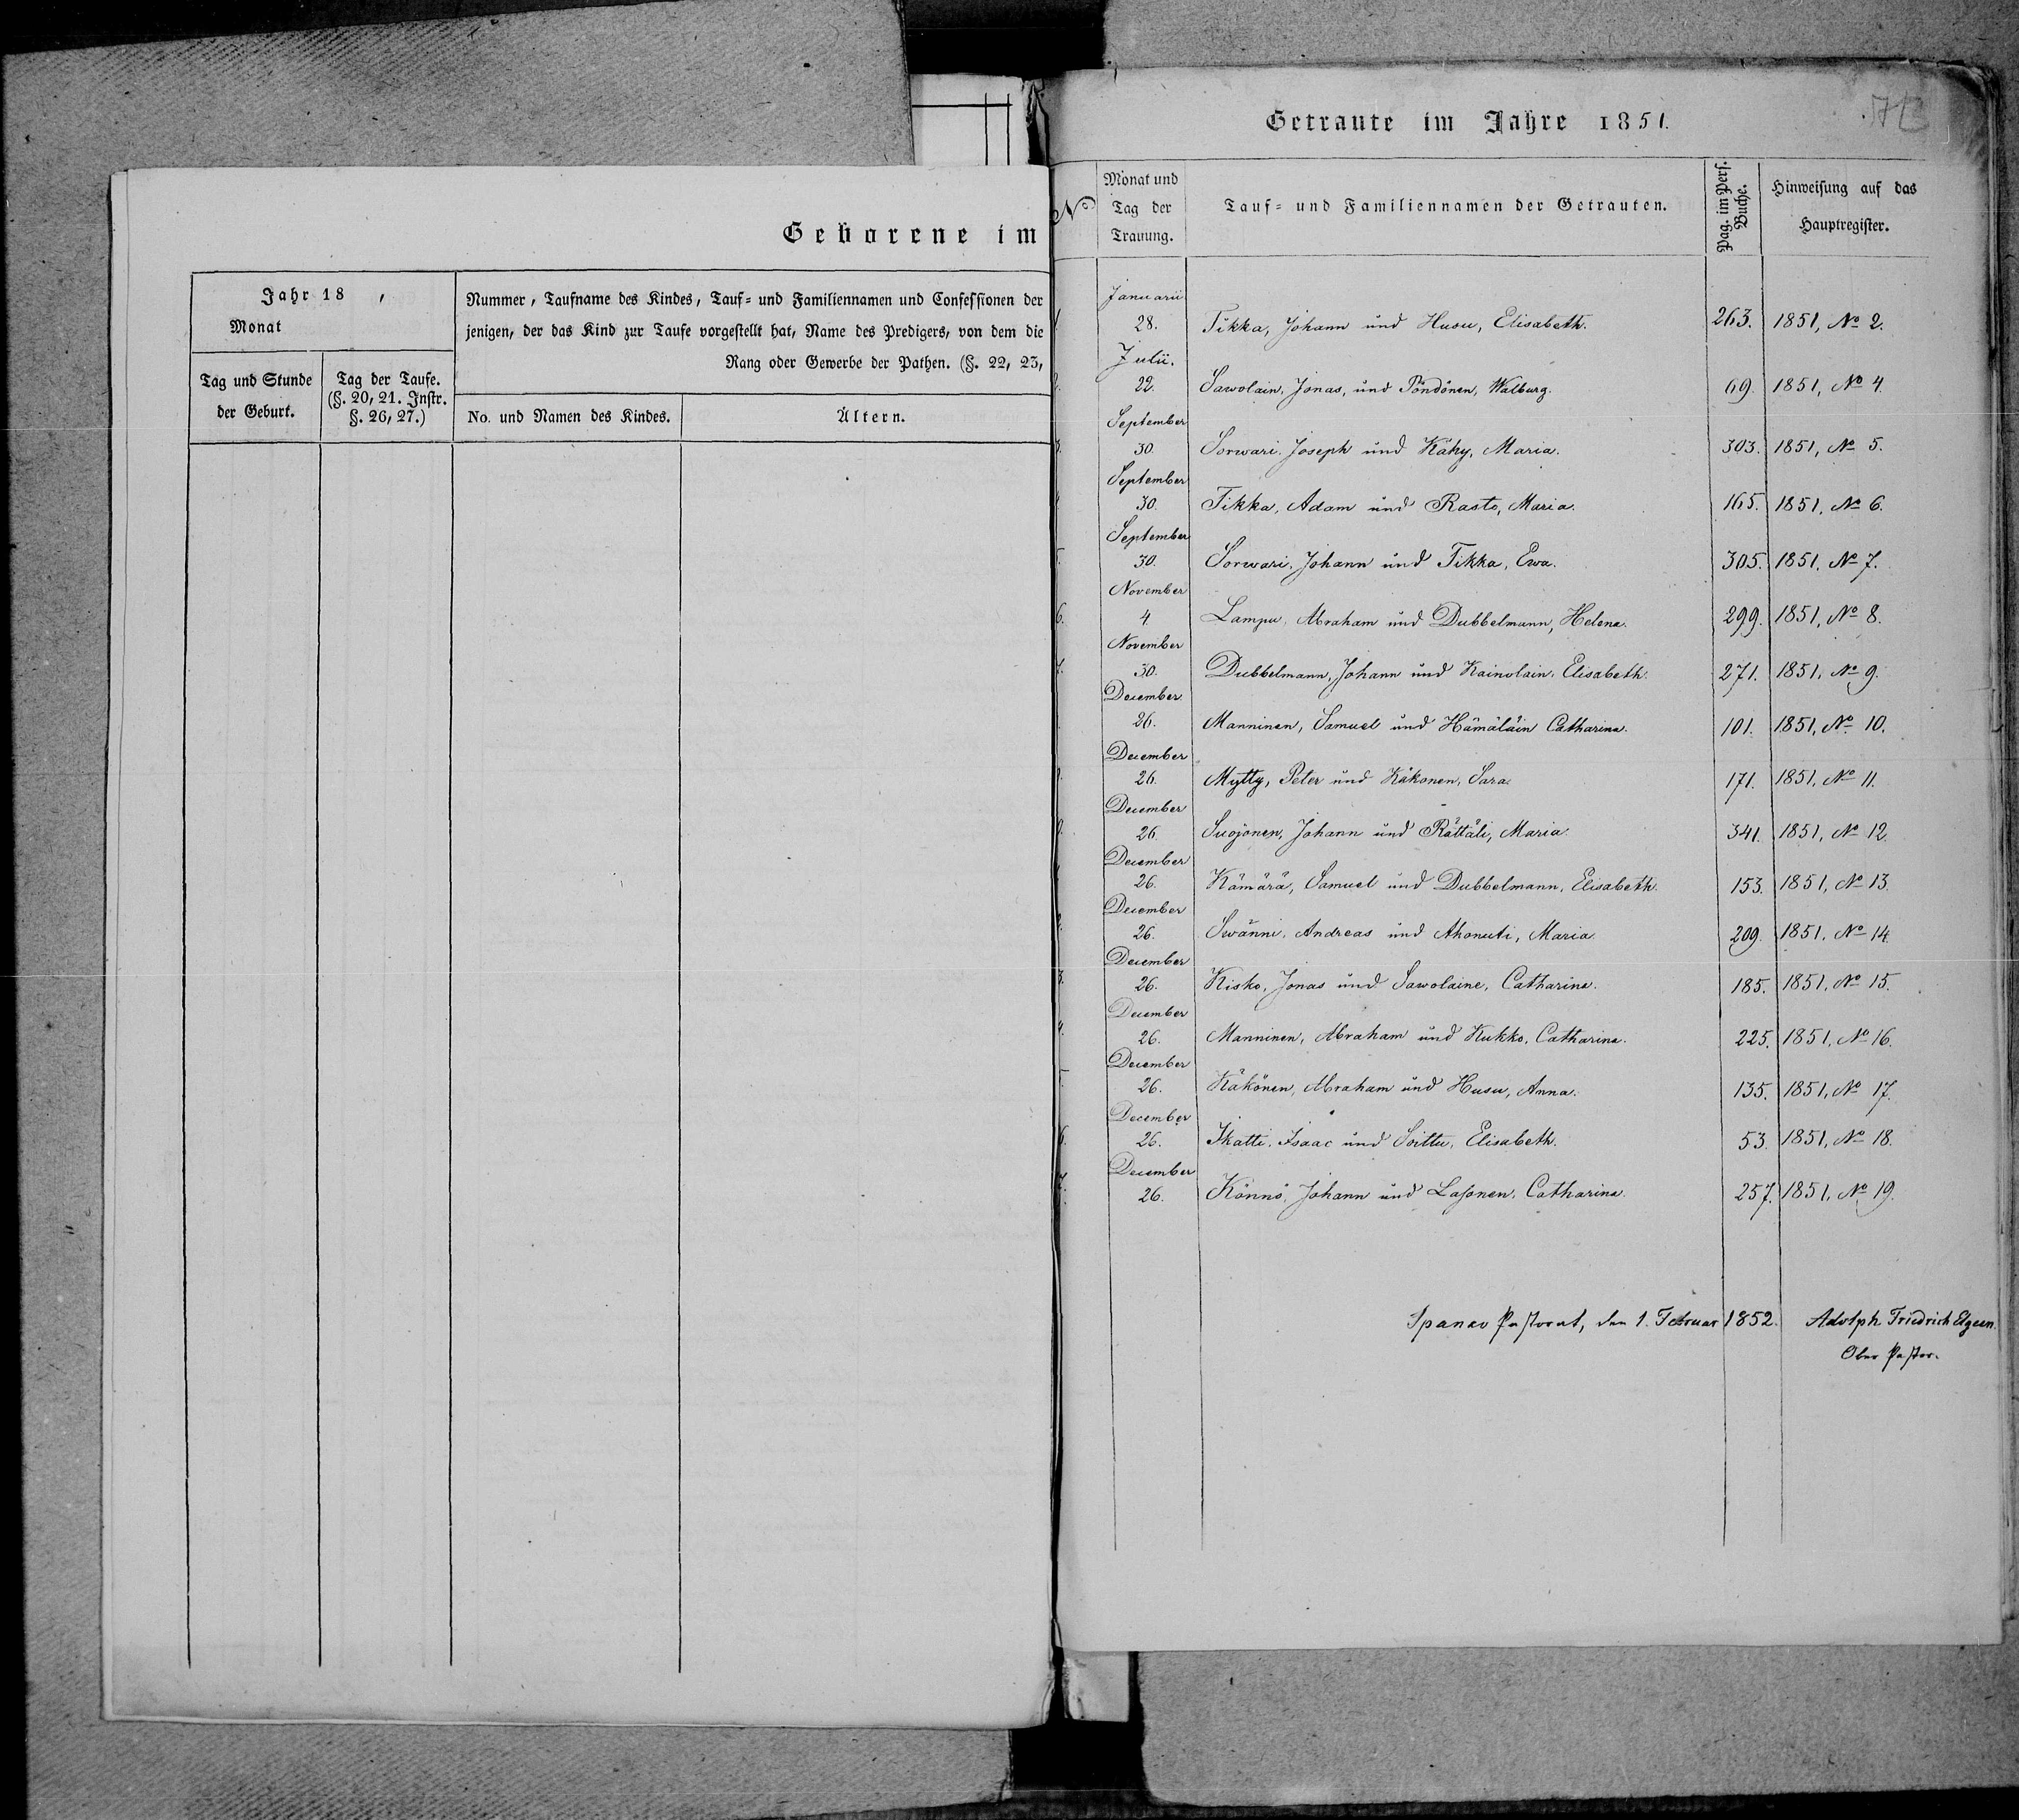 Geborene im
Jahr 18 ,
Monat
Tag und Stunde
der Geburt.
Tag der Taufe.
(§. 20, 21. Instr.
§. 26, 27.)
Nummer, Taufname des Kindes, Tauf- und Familiennamen und Confessionen der
jenigen, der das Kind zur Taufe vorgestellt hat, Name des Predigers, von dem die
Rang oder Gewerbe der Pathen. (§. 22, 23,
No. und Namen des Kindes.
Ältern.
Getraute im Jahre 1851.
No
Monat und
Tag der
Trauung.
Tauf- und Familiennamen der Getrauten.
Pag. im Pers.
Buche.
Hinweisung auf das
Hauptregister.
Januarii
28. Tikka, Johann und Husu, Elisabeth. 263. 1851, No 2.
Julii.
22. Sawolain, Jonas, und Pöndönen, Walburg. 69. 1851, No 4.
September
30. Sorwari, Joseph und Kähy, Maria. 303. 1851, No 5.
September
30. Tikka, Adam und Rasto, Maria. 165. 1851, No 6.
September
30. Sorwari, Johann und Tikka, Ewa. 305. 1851, No 7.
November
6. 4. Lampu, Abraham und Dubbelmann, Helena. 299. 1851, No 8.
November
7. 30. Dubbelmann, Johann und Kainolain, Elisabeth. 271. 1851, No 9.
December
26. Manninen, Samuel und Hämäläin Catharina. 101. 1851, No 10.
December
26. Mytty, Peter und Käkonen, Sara. 171. 1851, No 11.
December
26. Suojonen, Johann und Rättäli, Maria. 341. 1851, No 12.
December
26. Kämärä, Samuel und Dubbelmann, Elisabeth. 153. 1851, No 13.
December
26. Swänni, Andreas und Ahonuti, Maria. 209. 1851, No 14.
December
26. Kisko, Jonas und Sawolaine, Catharina. 185. 1851, No 15.
December
26. Manninen, Abraham und Kukko, Catharina. 225. 1851, No 16.
December
26. Käkönen, Abraham und Husu, Anna. 135. 1851, No 17.
December
26. Ikatti, Isaac und Soittu, Elisabeth. 53. 1851, No 18.
December
26. Könnö, Johann und Lasonen, Catharina. 257. 1851, No 19.
Spanko Pastorat, den 1. Februar 1852. Adolph Friedrich
Ober Pastor.